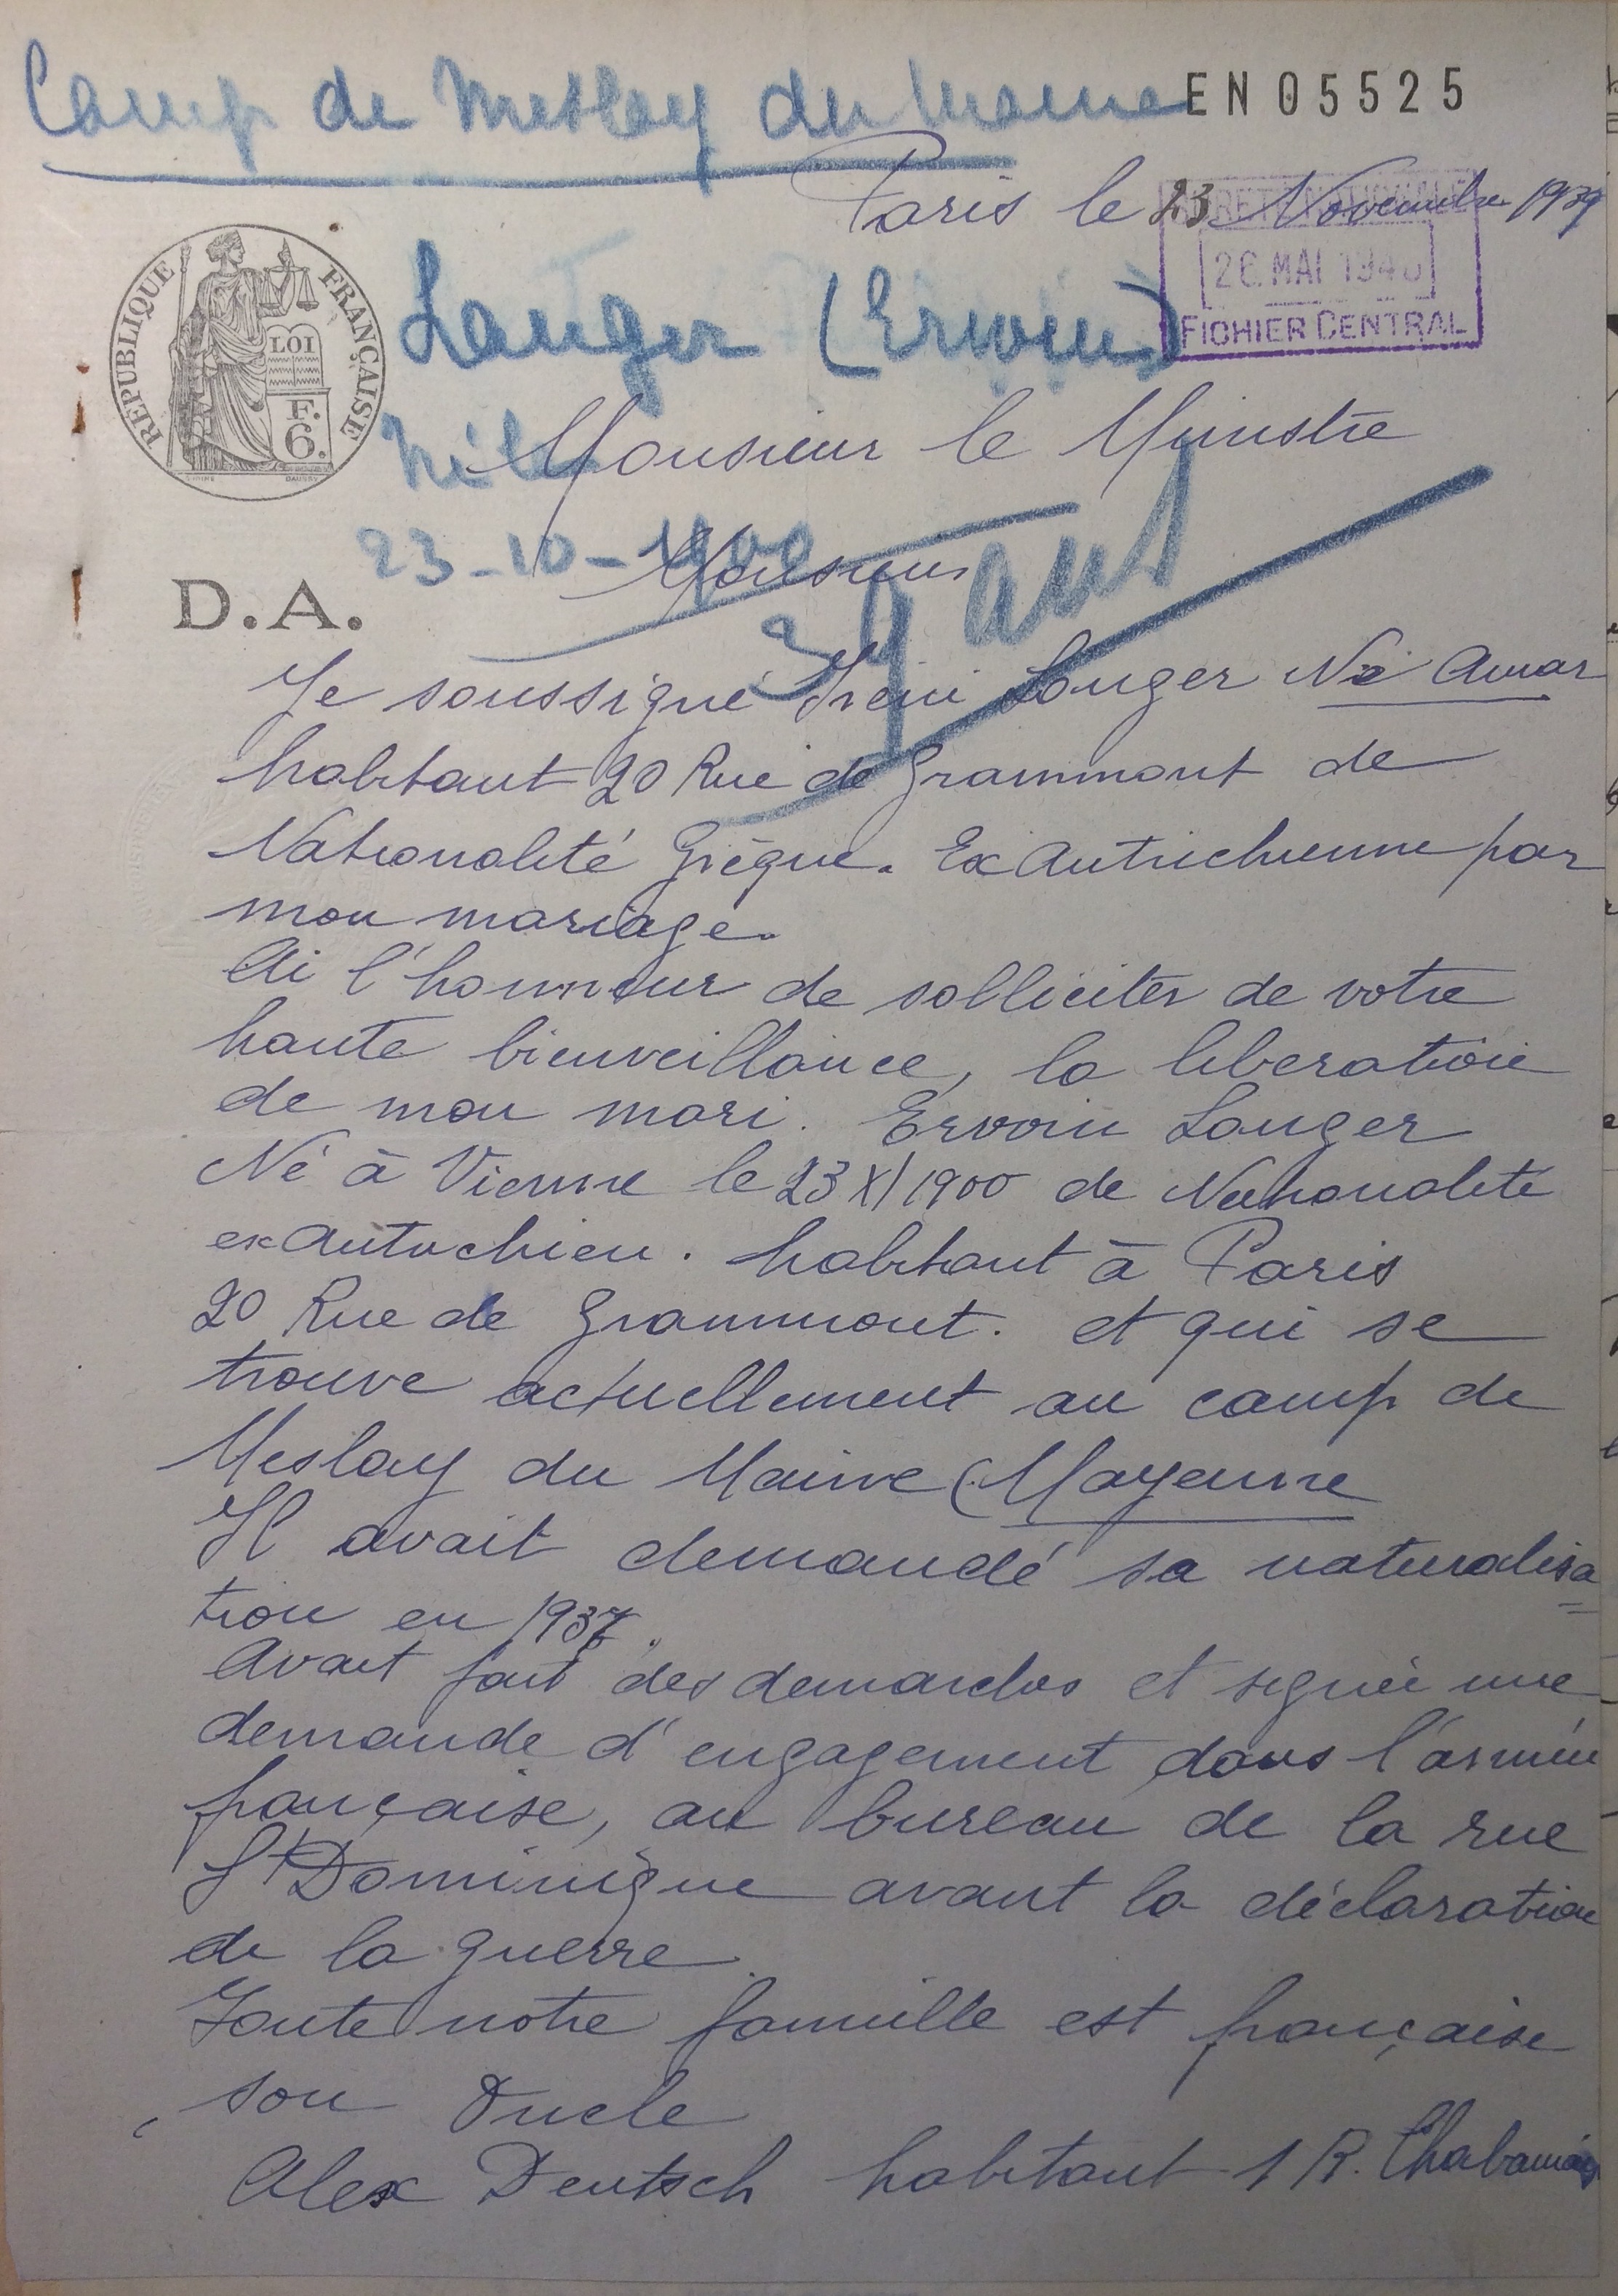 Camp de Meslay du Maine
EN05525
Paris le 23 Novembre 1939
26 MAI 1940
FICHIER CENTRAL
RÉPUBLIQUE FRANÇAISE
LOI
F.
6.
Langer (Erwin)
Monsieur le Ministre
23-10-1900
39 ans
Monsieur
D.A.
Je soussigné Iréni Langer Né Amar
habitant 20 Rue de Grammont de
Nationalité Grèque. Ex Autrichienne par
mon mariage.
Ai l'honneur de solliciter de votre
haute bienveillance, la liberation
de mon mari. Erwin Langer
Né à Vienne le 23 XI 1900 de Nationalité
ex Autrichien. habitant à Paris
20 Rue de Grammont. et qui se
trouve actuellement au camp de
Meslay du Maine (Mayenne
Il avait demandé sa naturalisa
tion en 1937.
Avait fait des demarches et signée une
demande d'engagement dans l'armée
française, au bureau de la rue
St Dominique avant la déclaration
de la guerre.
Toute notre famille est française
son Oncle
Alex Deutsch habitant 1 R. Chabanais